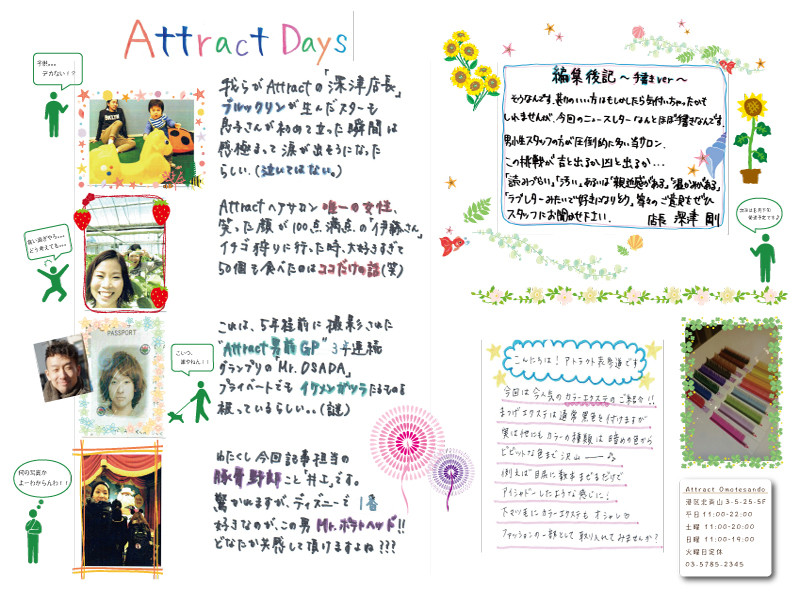 Attract Days
今更。。。
デカない！？
我らがAttractの「深津店長」
ブルックリンが生んだスターも
息子さんが初めて立った瞬間は
感極まって涙が出そうになった
らしい。(泣いてはない。)
良い過ぎやろ。。。
どう考えても。。。
Attractヘアサロン唯一の女性、
笑った顔が100点満点の「伊藤さん」
イチゴ狩りに行った時、大好きすぎて
50個も食べたのはココだけの話(笑)
PASSPORT
こいつ、
誰やねん！！
これは、5年程前に撮影された
"Attract男前GP"3年連続
グランプリの「Mr.OSADA」
プライベートでもイケメンガツラたるものを
被っているらしい。。(謎)
何の写真か
よーわからんわ！！
わたくし今回記事担当の
豚骨野郎こと井上です。
驚かれますが、ディズニーで1番
好きなのが、この男Mr.ポテトヘッド!!
どなたか共感して頂けますよね???
編集後記～手書きver～
そうなんです。勘のいい方はもしかしたら気付いちゃったかも
しれませんが、今回のニュースレターなんとほぼ手書きなんです。
男性スタッフの方が圧倒的に多い当サロン。
この挑戦が吉と出るか凶と出るか…
「読みづらい」「汚い」あるいは"親近感がある"、"温かみがある"
「ラブレターみたいで好きになりそう」等々のご意見をぜひ
スタッフにお聞かせ下さい。 店長 深津 剛
こんにちは！アトラクト表参道です
今回は今人気のカラーエクステのご紹介!!
まつげエクステは通常黒色を付けますが
実は他にもカラーの種類は暗めの色から
ビビットな色まで沢山
例えば目尻に数本まぜるだけで
アイシャドーしたような感じに！
下マツ毛にカラーエクステもオシャレ
ファッションの一部として取り入れてみませんか？
Attract Omotesando
港区北青山3-5-25-5F
平日 11:00-22:00
土曜 11:00-20:00
日曜 11:00-19:00
火曜日定休
03-5785-2345